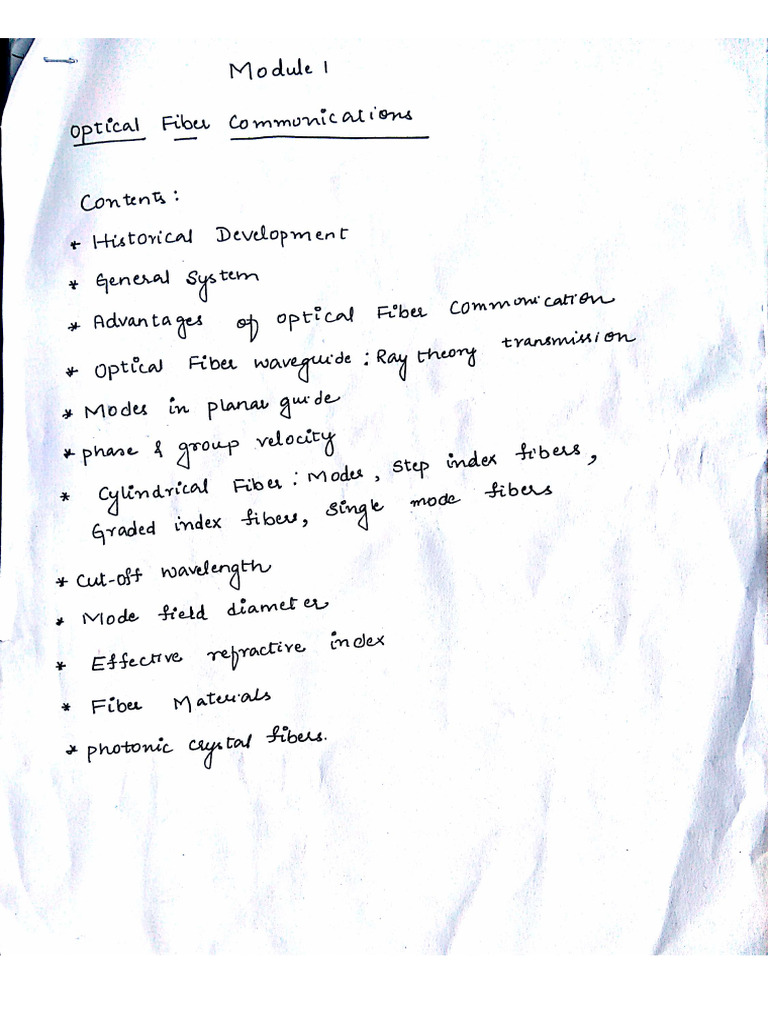 Module 1
Optical Fiber Communications
Contents:
* Historical Development
* General System
* Advantages of optical Fiber Communication
* Optical Fiber waveguide: Ray theory transmission
* Modes in planar guide
* phase & group velocity
* Cylindrical Fiber: Modes, Step index fibers,
Graded index fibers, Single mode fibers
* Cut-off wavelength
* Mode field diameter
* Effective refractive index
* Fiber Materials
* photonic crystal fibers.